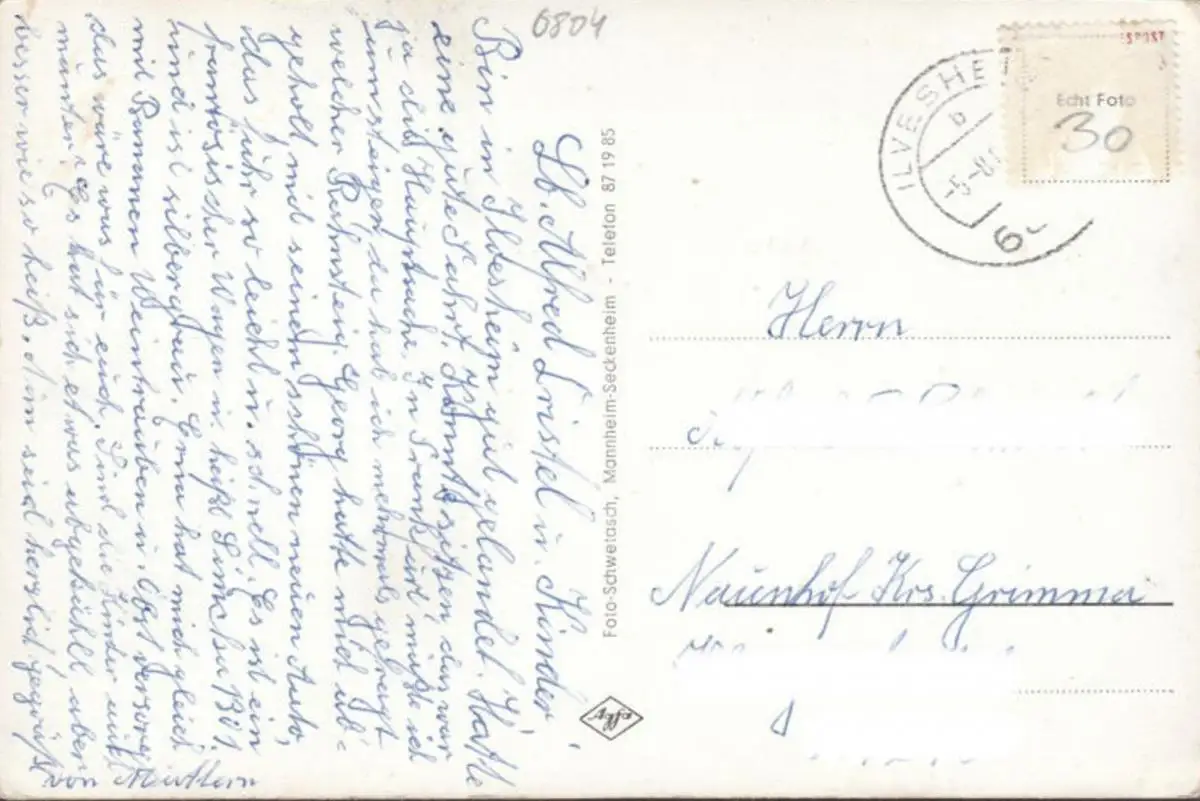 6804
Lb. Alfred Liestel u. Kinder!
Bin in Ilvesheim gut gelandet. Hatte
eine gute Fahrt. Konnte sitzen das war
ja die Hauptsache. In Frankfurt mußte ich
umsteigen da hab ich mehrmals gefragt
welcher Bahnsteig. Georg hatte mich ab-
geholt mit seinem schönen neuen Auto,
das fuhr so leicht u. schnell. Es ist ein
französischer Wagen u. heißt Simca
und ist silbergrau. Erna hat mich gleich
mit Bananen Weintrauben u. Obst versorgt
das wäre was für euch. Sind die Kinder auch
munter. Es hat sich etwas abgekühlt aber
besser wie so heiß. Nun seid herzlich gegrüßt
von Muttern
Foto-Schwetasch, Mannheim-Seckenheim - Telefon 87 19 85
Agfa
ILVESHE
b
SPOST
Echt Foto
30
Herrn
Naunhof Krs. Grimma